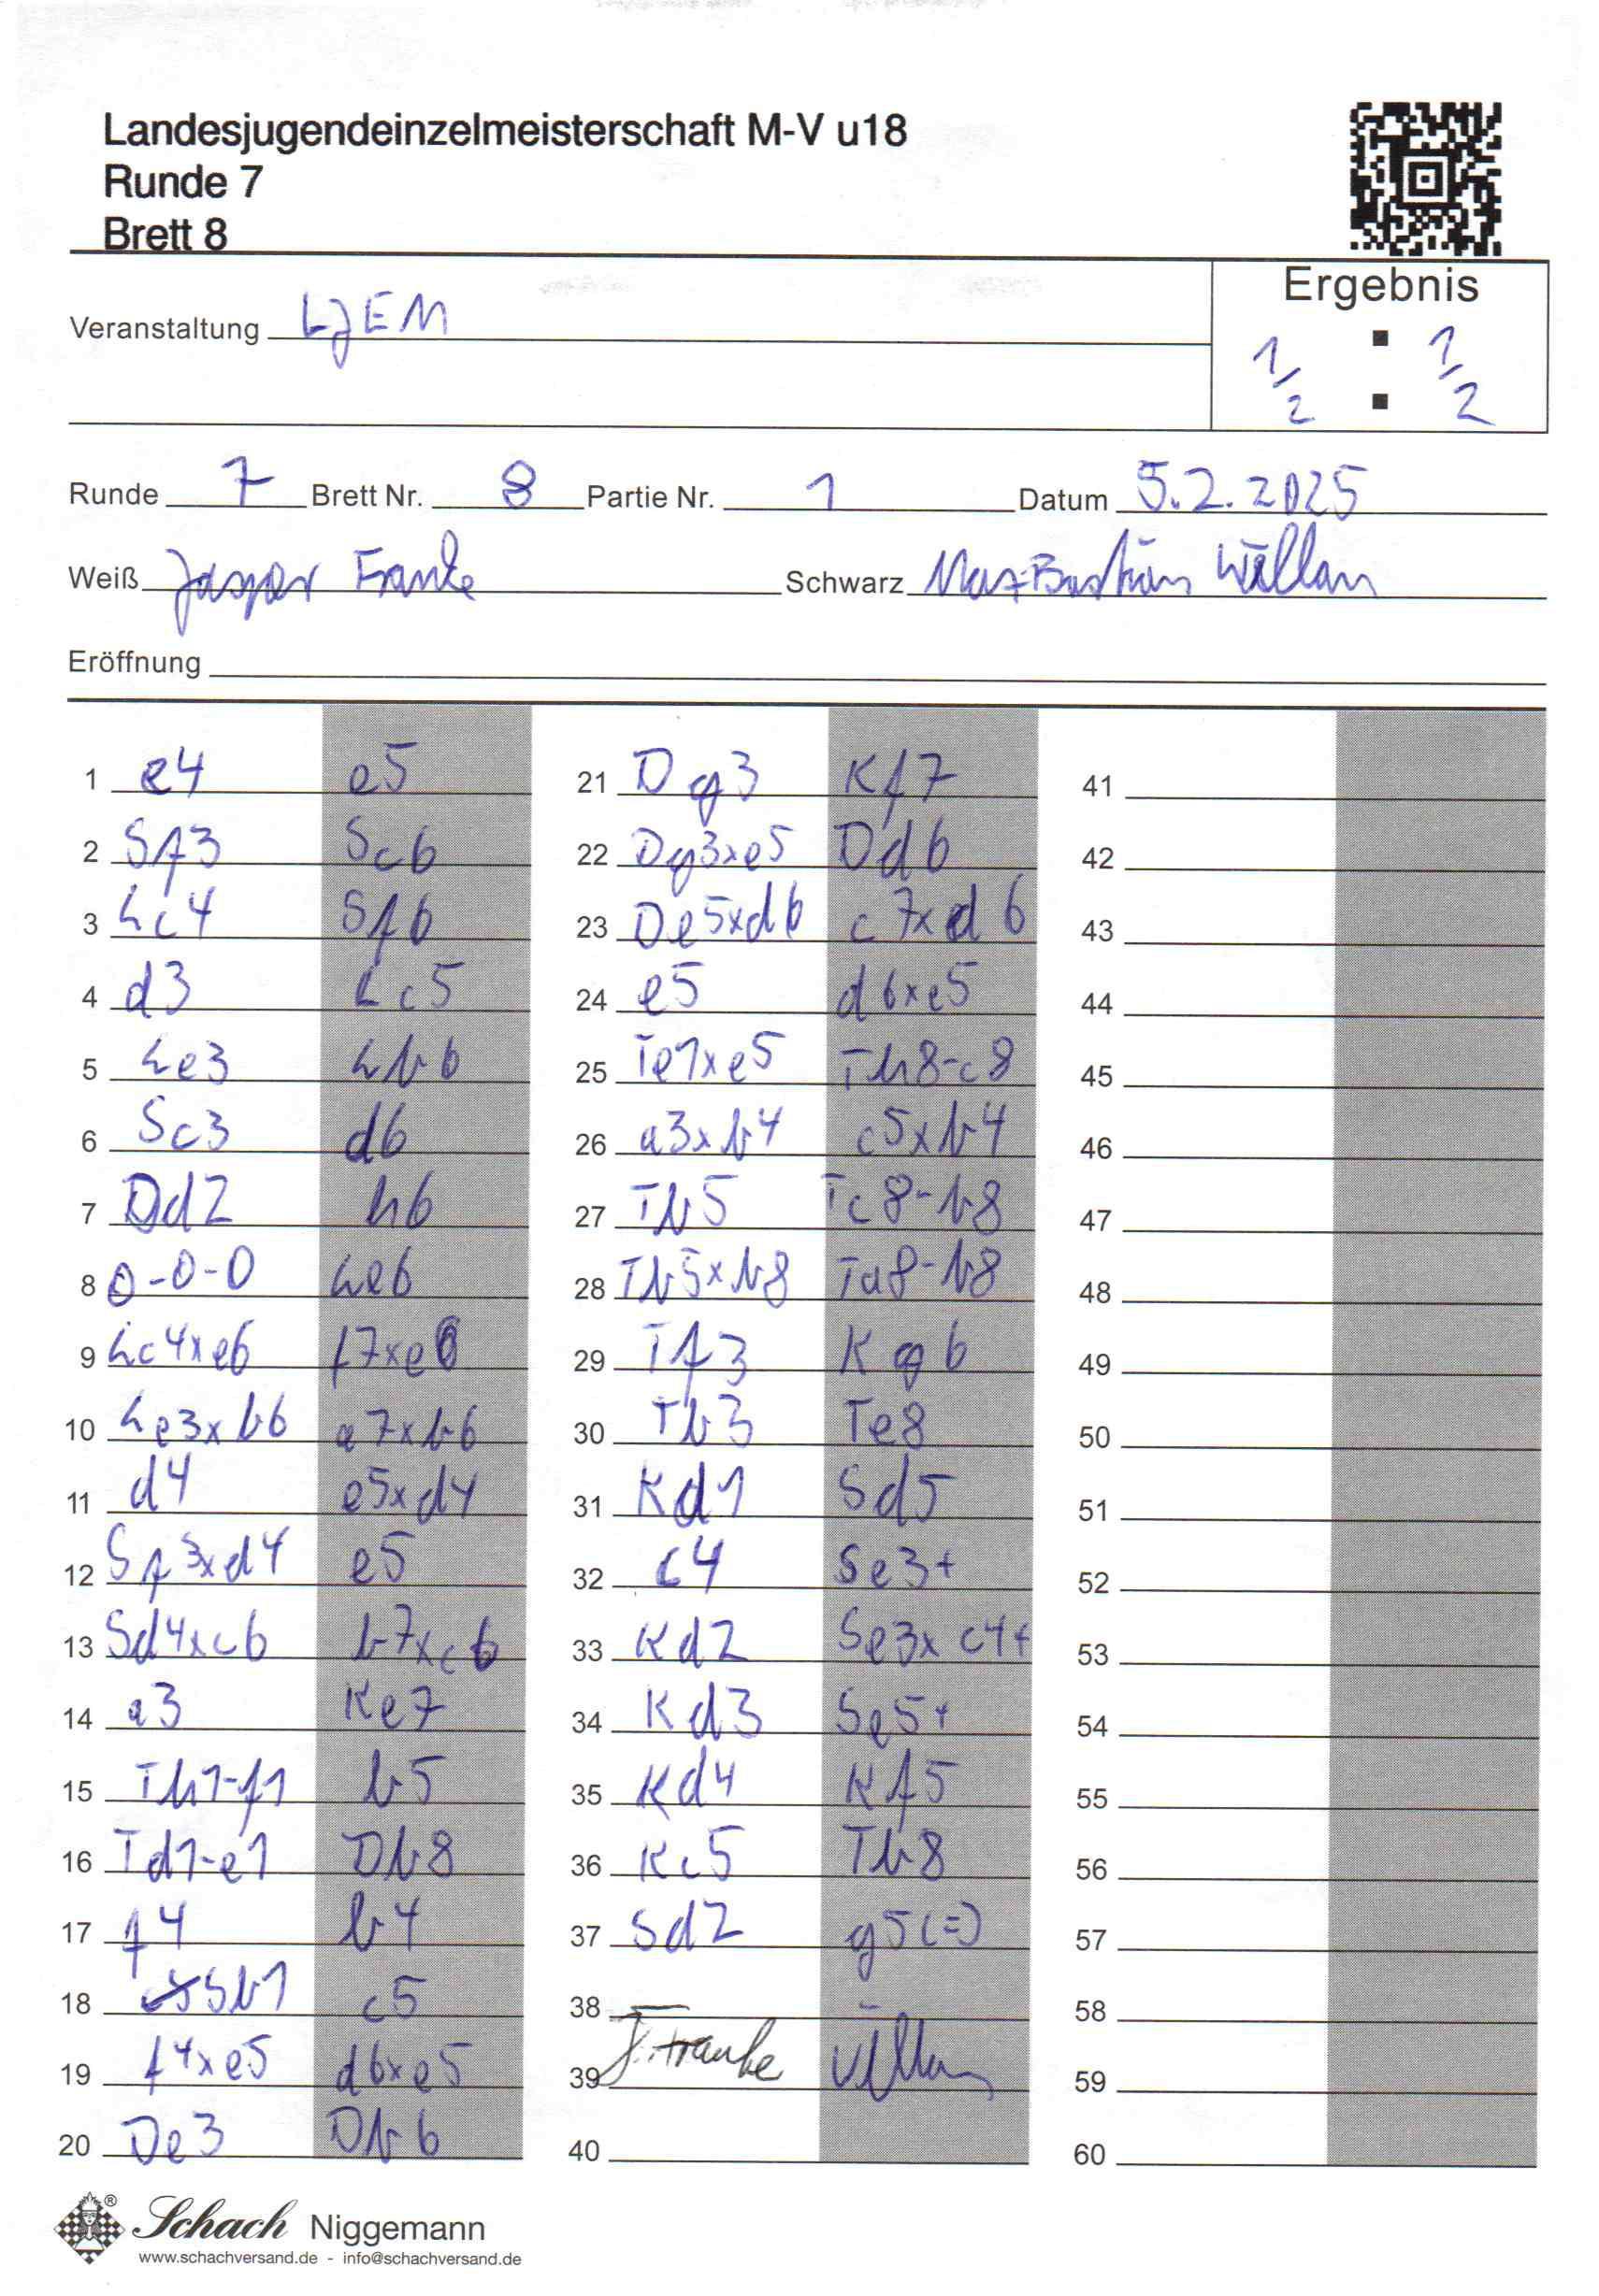 Landesjugendeinzelmeisterschaft M-V u18
Runde 7
Brett 8
Ergebnis
Veranstaltung LJEM
1/2 : 1/2
Runde 7 Brett Nr. 8 Partie Nr. 1 Datum 5.2.2025
Weiß Jasper Franke Schwarz Max-Bastian Üllan
Eröffnung
1 e4 e5
2 Sf3 Sc6
3 Lc4 Sf6
4 d3 Lc5
5 Le3 Lb6
6 Sc3 d6
7 Dd2 h6
8 0-0-0 Le6
9 Lc4xe6 f7xe6
10 Le3xb6 a7xb6
11 d4 e5xd4
12 Sf3xd4 e5
13 Sd4xc6 b7xc6
14 a3 Ke7
15 Th1-f1 b5
16 Td1-e1 Db8
17 f4 b4
18 Sb1 c5
19 f4xe5 d6xe5
20 De3 Db6
21 Dg3 Kf7
22 Dg3xe5 Dd6
23 De5xd6 c7xd6
24 e5 d6xe5
25 Te1xe5 Th8-c8
26 a3xb4 c5xb4
27 Tb5 Tc8-b8
28 Tb5xb8 Ta8-b8
29 Tf3 Kg6
30 Tb3 Te8
31 Kd1 Sd5
32 c4 Se3+
33 Kd2 Se3xc4+
34 Kd3 Se5+
35 Kd4 Kf5
36 Kc5 Tb8
37 Sd2 g5(=)
38
39 J. Franke
40
41
42
43
44
45
46
47
48
49
50
51
52
53
54
55
56
57
58
59
60
Schach Niggemann
®
www.schachversand.de - info@schachversand.de